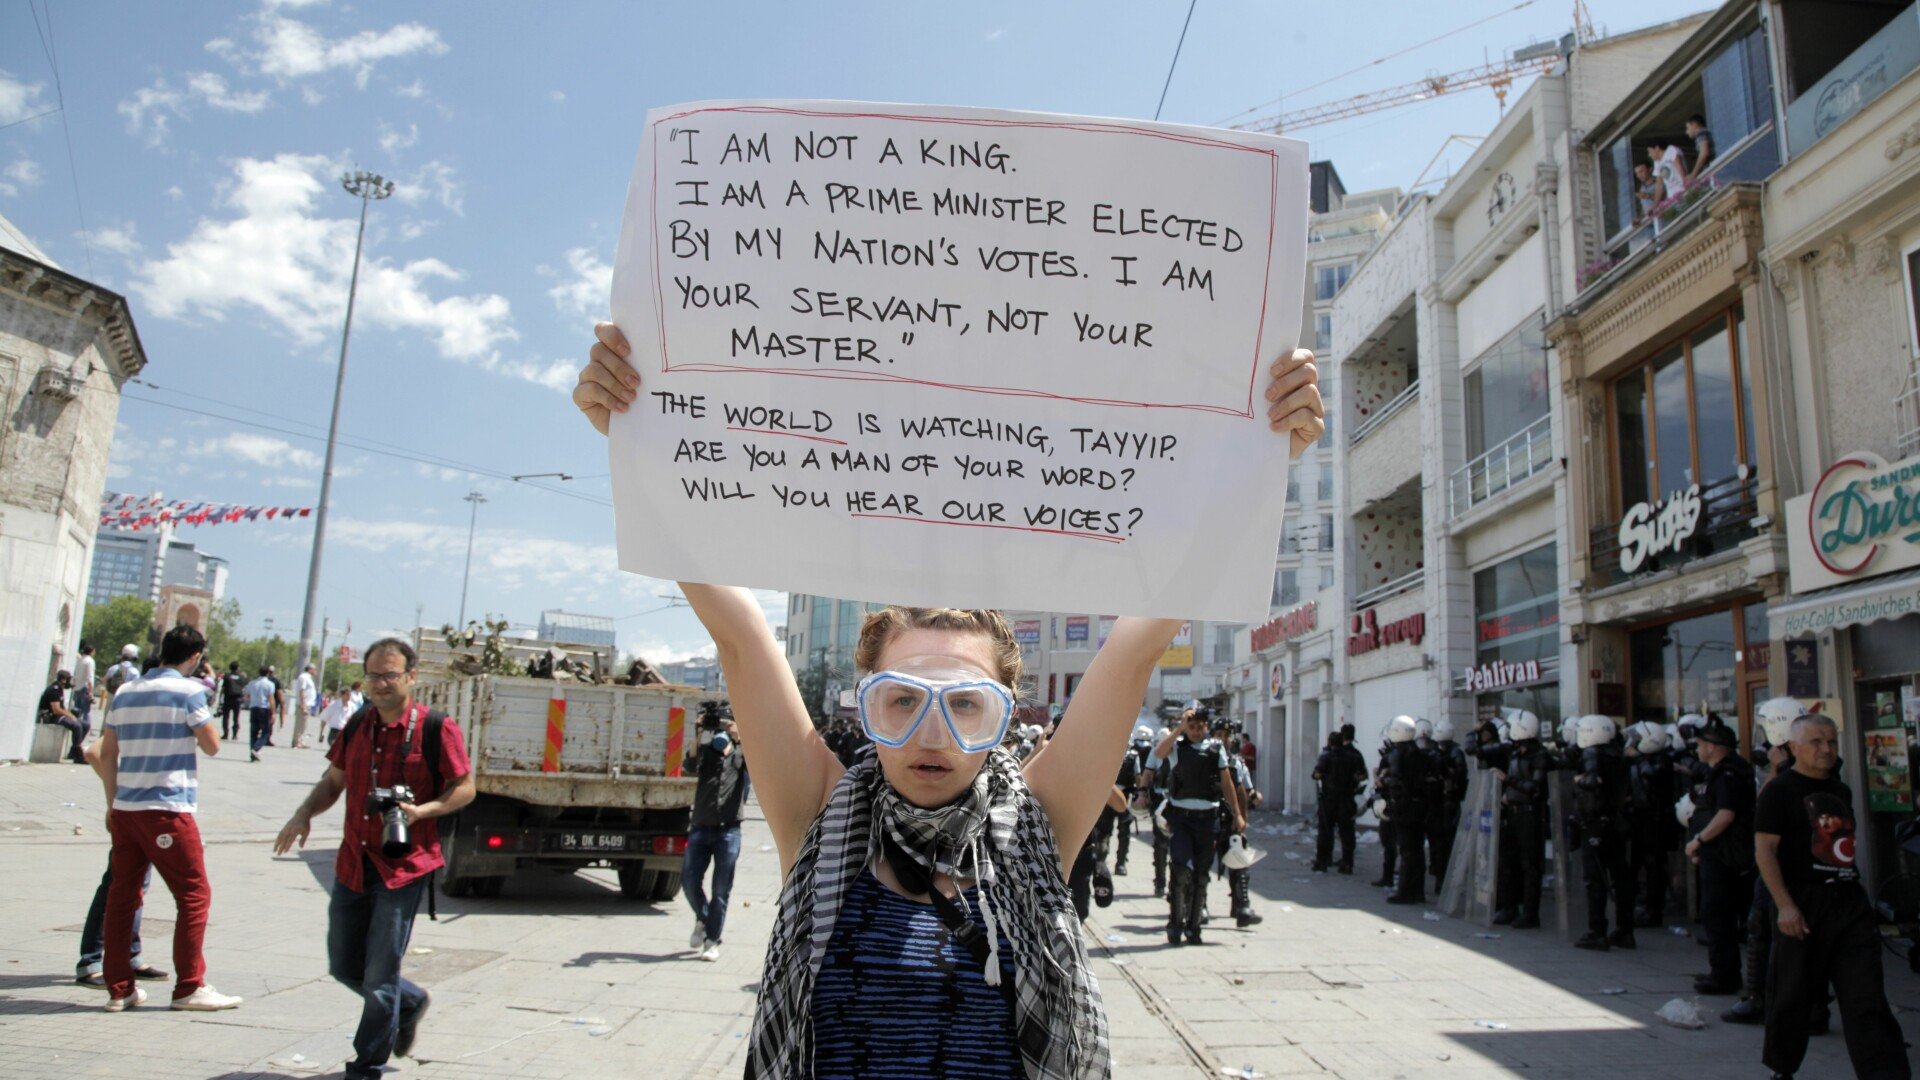 "I AM NOT A KING.
I AM A PRIME MINISTER ELECTED
BY MY NATION'S VOTES. I AM
YOUR SERVANT, NOT YOUR
MASTER."
THE WORLD IS WATCHING, TAYYIP.
ARE YOU A MAN OF YOUR WORD?
WILL YOU HEAR OUR VOICES?
Sütiş
SANDW
Dur
Hot-Cold Sandwiches
Pehlivan
34 DK 6409